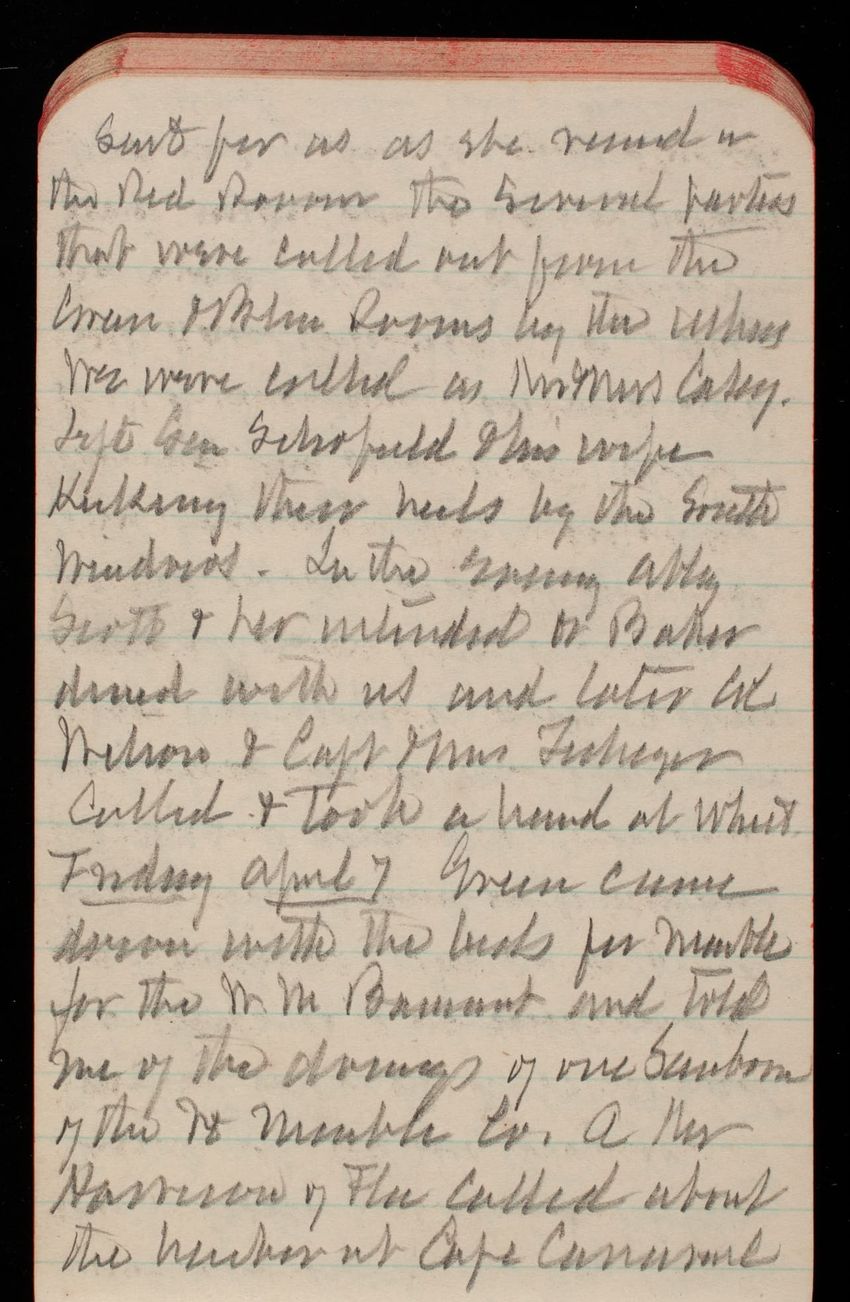 Sent for us as she recvd in
the Red Room the several parties
that were called out from the
Green & Blue Rooms by the ushers
We were called as Mr & Mrs Casey.
Left Gen Schofield & his wife
Kicking their heels by the South
Windows. In the evening Abby
Scott & her intended Dr Baker
dined with us and later Col
Wilson & Capt & Mrs
Called & took a hand at Whist.
Friday April 7 Green came
down with the bids for marble
for the W. M Basement and told
me of the doings of one Sanborn
of the Vt Marble Co. A Mr
Harrison of Fla called about
the harbor at Cape Canaveral